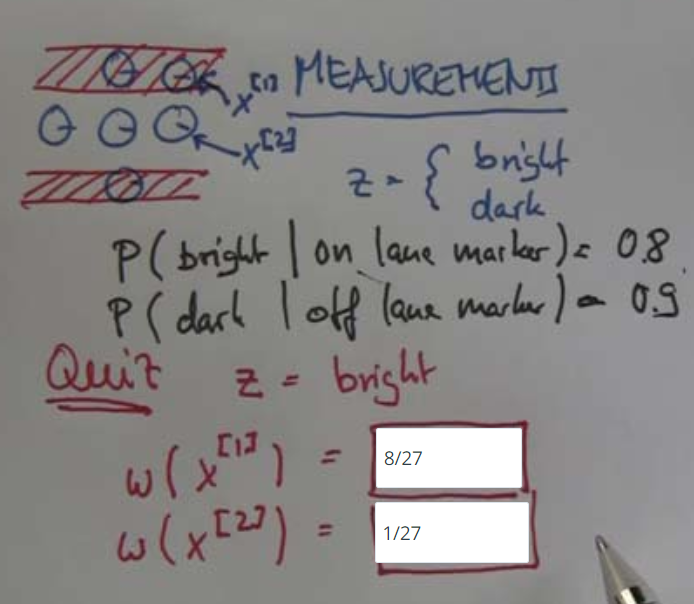 x[1] MEASUREMENTS
x[2]
z = { bright
dark
P( bright | on lane marker) = 0.8
P( dark | off lane marker) = 0.9
Quiz z = bright
w(x[1]) = 8/27
w(x[2]) = 1/27